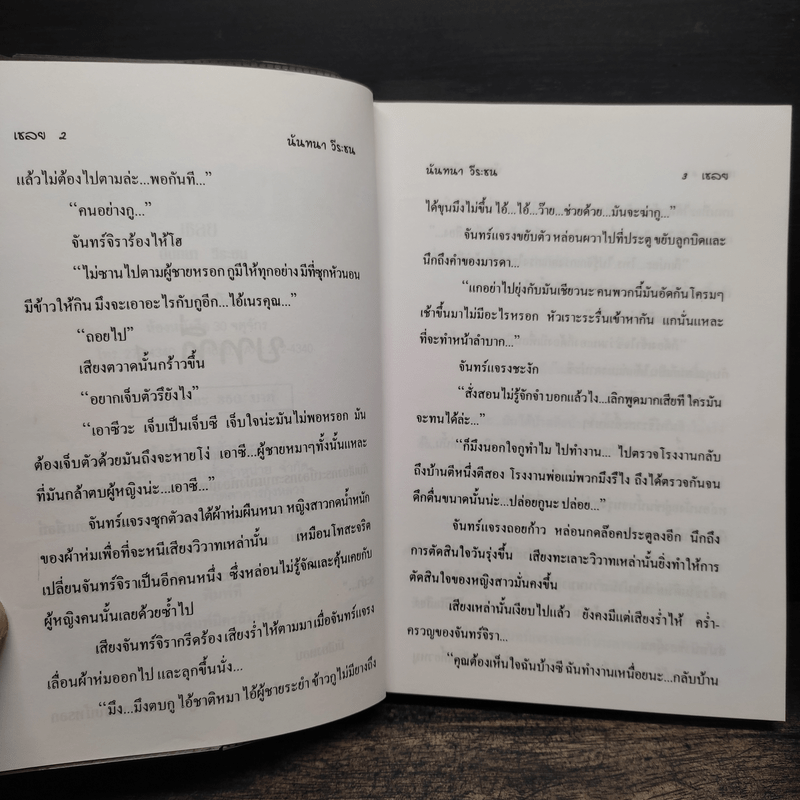 เชลย 2
นันทนา วีระชน
แล้วไม่ต้องไปตามล่ะ...พอกันที...”
“คนอย่างกู...”
จันทร์จิราร้องไห้โฮ
“ไม่ซานไปตามผู้ชายหรอก กูมีให้ทุกอย่าง มีที่ซุกหัวนอน
มีข้าวให้กิน มึงจะเอาอะไรกับกูอีก...ไอ้เนรคุณ...”
“ถอยไป”
เสียงตวาดนั้นกร้าวขึ้น
“อยากเจ็บตัวรึยังไง”
“เอาซีวะ เจ็บเป็นเจ็บซี เจ็บใจน่ะมันไม่พอหรอก มัน
ต้องเจ็บตัวด้วยมันถึงจะหายโง่ เอาซี...ผู้ชายหมาๆทั้งนั้นแหละ
ที่มันกล้าตบผู้หญิงน่ะ...เอาซี...”
จันทร์แจรงซุกตัวลงใต้ผ้าห่มผืนหนา หญิงสาวกดน้ำหนัก
ของผ้าห่มเพื่อที่จะหนีเสียงวิวาทเหล่านั้น เหมือนโทสะจริต
เปลี่ยนจันทร์จิราเป็นอีกคนหนึ่ง ซึ่งหล่อนไม่รู้จักและคุ้นเคยกับ
ผู้หญิงคนนั้นเลยด้วยซ้ำไป
เสียงจันทร์จิรากรีดร้อง เสียงร่ำไห้ตามมา เมื่อจันทร์แจรง
เลื่อนผ้าห่มออกไป และลุกขึ้นนั่ง...
“มึง...มึงตบกู ไอ้ชาติหมา ไอ้ผู้ชายระยำ ข้าวกูไม่มียางถึง
นันทนา วีระชน
3 เชลย
ได้ขุนมึงไม่ขึ้น ไอ้...ไอ้...ว๊าย...ช่วยด้วย...มันจะฆ่ากู...”
จันทร์แจรงขยับตัว หล่อนผวาไปที่ประตู ขยับลูกบิดและ
นึกถึงคำของมารดา...
“แกอย่าไปยุ่งกับมันเชียวนะ คนพวกนี้มันอัดกันโครมๆ
เช้าขึ้นมาไม่มีอะไรหรอก หัวเราะระรื่นเข้าหากัน แกนั่นแหละ
ที่จะทำหน้าลำบาก...”
จันทร์แจรงชะงัก
“สั่งสอนไม่รู้จักจำ บอกแล้วไง...เลิกพูดมากเสียที ใครมัน
จะทนได้ล่ะ...”
“ก็มึงนอกใจกูทำไม ไปทำงาน... ไปตรวจโรงงานกลับ
ถึงบ้านตีหนึ่งตีสอง โรงงานพ่อแม่พวกมึงรึไง ถึงได้ตรวจกันจน
ดึกดื่นขนาดนั้นน่ะ...ปล่อยกูนะ ปล่อย...”
จันทร์แจรงถอยก้าว หล่อนกดล็อคประตูลงอีก นึกถึง
การตัดสินใจวันรุ่งขึ้น เสียงทะเลาะวิวาทเหล่านั้นยิ่งทำให้การ
ตัดสินใจของหญิงสาวมั่นคงขึ้น
เสียงเหล่านั้นเงียบไปแล้ว ยังคงมีแต่เสียงร่ำไห้ คร่ำ-
ครวญของจันทร์จิรา...
“คุณต้องเห็นใจฉันบ้างซี ฉันทำงานเหนื่อยนะ...กลับบ้าน